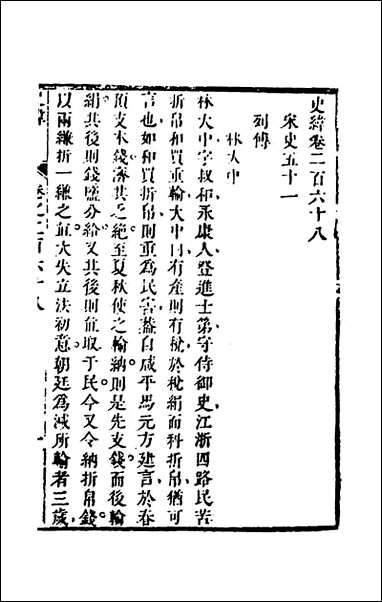 史緯卷二百六十八
宋史五十一
列傳
林大中
林大中字叔和永康人登進士第守侍御史江浙四路民苦
折帛和買重輸大中曰有產則有稅於稅絹而科折帛猶可
言也如和買折帛則重為民害蓋自咸平馬元方建言於春
預支本錢濟其乏絕至夏秋使之輸納則是先支錢而後輸
絹其後則錢鹽分給又其後則直取于民今又令納折帛錢
以兩縑折一縑之直大失立法初意朝廷為減所輸者三歲